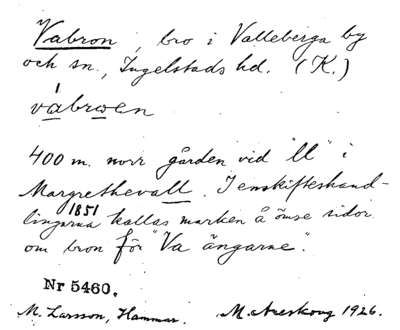 Vabron, bro i Valleberga by
och sn., Ingelstads hd. (K.)
vábrωen
400 m. norr gården vid "ll" i
Margrethevall. I enskifteshand-
lingarna 1851 kallas marken å ömse sidor
om bron för "Va ängarne".
Nr 5460.
M. Larsson, Hammar. M. Areskoug 1926.